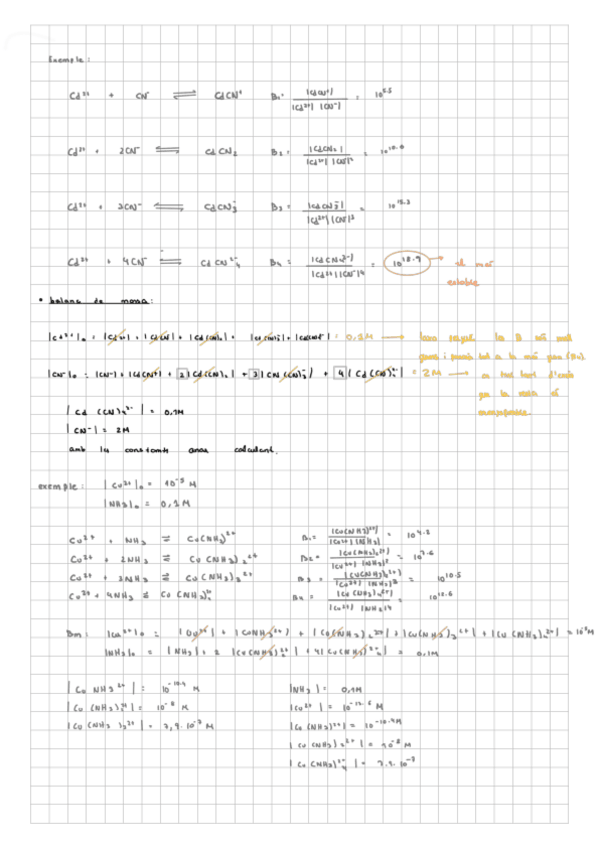 Exemple:
Cd²⁺ + CN⁻ ⇌ CdCN⁺ B₁ = |CdCN⁺| / |Cd²⁺| |CN⁻| = 10^5.5
Cd²⁺ + 2CN⁻ ⇌ CdCN₂ B₂ = |CdCN₂| / |Cd²⁺| |CN|² = 10^10.6
Cd²⁺ + 3CN⁻ ⇌ CdCN₃⁻ B₃ = |CdCN₃⁻| / |Cd²⁺| |CN|³ = 10^15.3
Cd²⁺ + 4CN⁻ ⇌ CdCN₄²⁻ B₄ = |CdCN₄²⁻| / |Cd²⁺| |CN⁻|⁴ = 10^18.9 → el més
estable
• balanç de massa:
|Cd²⁺|₀ = |Cd²⁺| + |CdCN| + |Cd(CN)₂| + |Cd(CN)₃⁻| + |Cd(CN)₄²⁻| = 0,1M →
|CN⁻|₀ = |CN⁻| + |CdCN⁺| + 2|Cd(CN)₂| + 3|CN(CN)₃⁻| + 4|Cd(CN)₄²⁻| = 2M →
|Cd(CN)₄²⁻| = 0,1M
|CN⁻| = 2M
amb les constants anar calculant.
exemple: |Cu²⁺|₀ = 10⁻⁵ M
|NH₃|₀ = 0,1M
Cu²⁺ + NH₃ ⇌ Cu(NH₃)²⁺ B₁ = |Cu(NH₃)²⁺| / |Cu²⁺| |NH₃| = 10^4.2
Cu²⁺ + 2NH₃ ⇌ Cu(NH₃)₂²⁺ B₂ = |Cu(NH₃)₂²⁺| / |Cu²⁺| |NH₃|² = 10^7.6
Cu²⁺ + 3NH₃ ⇌ Cu(NH₃)₃²⁺ B₃ = |Cu(NH₃)₃²⁺| / |Cu²⁺| |NH₃|³ = 10^10.5
Cu²⁺ + 4NH₃ ⇌ Cu(NH₃)₄²⁺ B₄ = |Cu(NH₃)₄²⁺| / |Cu²⁺| |NH₃|⁴ = 10^12.6
Bm: |Cu²⁺|₀ = |Cu²⁺| + |CuNH₃²⁺| + |Cu(NH₃)₂²⁺| + |Cu(NH₃)₃²⁺| + |Cu(NH₃)₄²⁺| = 10⁻⁵M
|NH₃|₀ = |NH₃| + 2|Cu(NH₃)₂²⁺| + 4|Cu(NH₃)₄²⁺| = 0,1M
|CuNH₃²⁺| = 10^-10.4 M |NH₃| = 0,1M
|Cu(NH₃)₂²⁺| = 10⁻⁸ M |Cu²⁺| = 10^-13.6 M
|Cu(NH₃)₃²⁺| = 7,9·10⁻⁷ M |Cu(NH₃)²⁺| = 10^-10.4 M
|Cu(NH₃)₂²⁺| = 10⁻⁸ M
|Cu(NH₃)₄²⁺| = 7.9·10⁻⁷